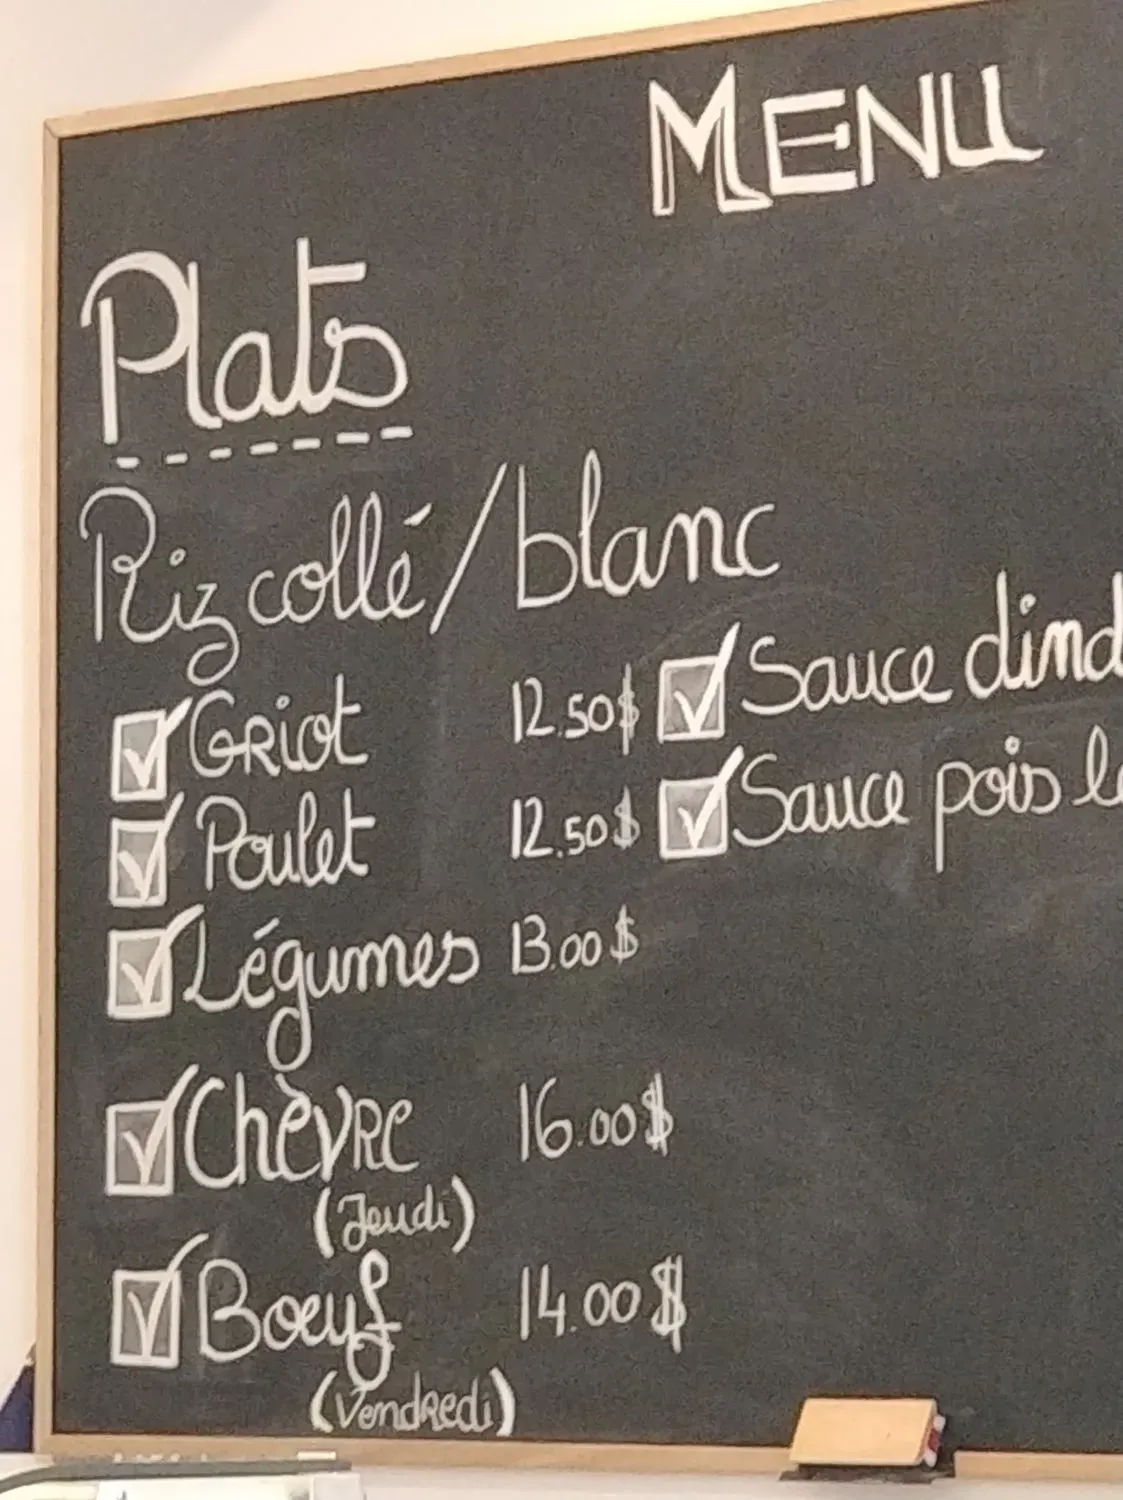 MENU
Plats
Riz collé/blanc
Griot 12.50$
Poulet 12.50$
Légumes 13.00$
Chèvre 16.00$
(Jeudi)
Boeuf 14.00$
(Vendredi)
Sauce dind
Sauce pois le